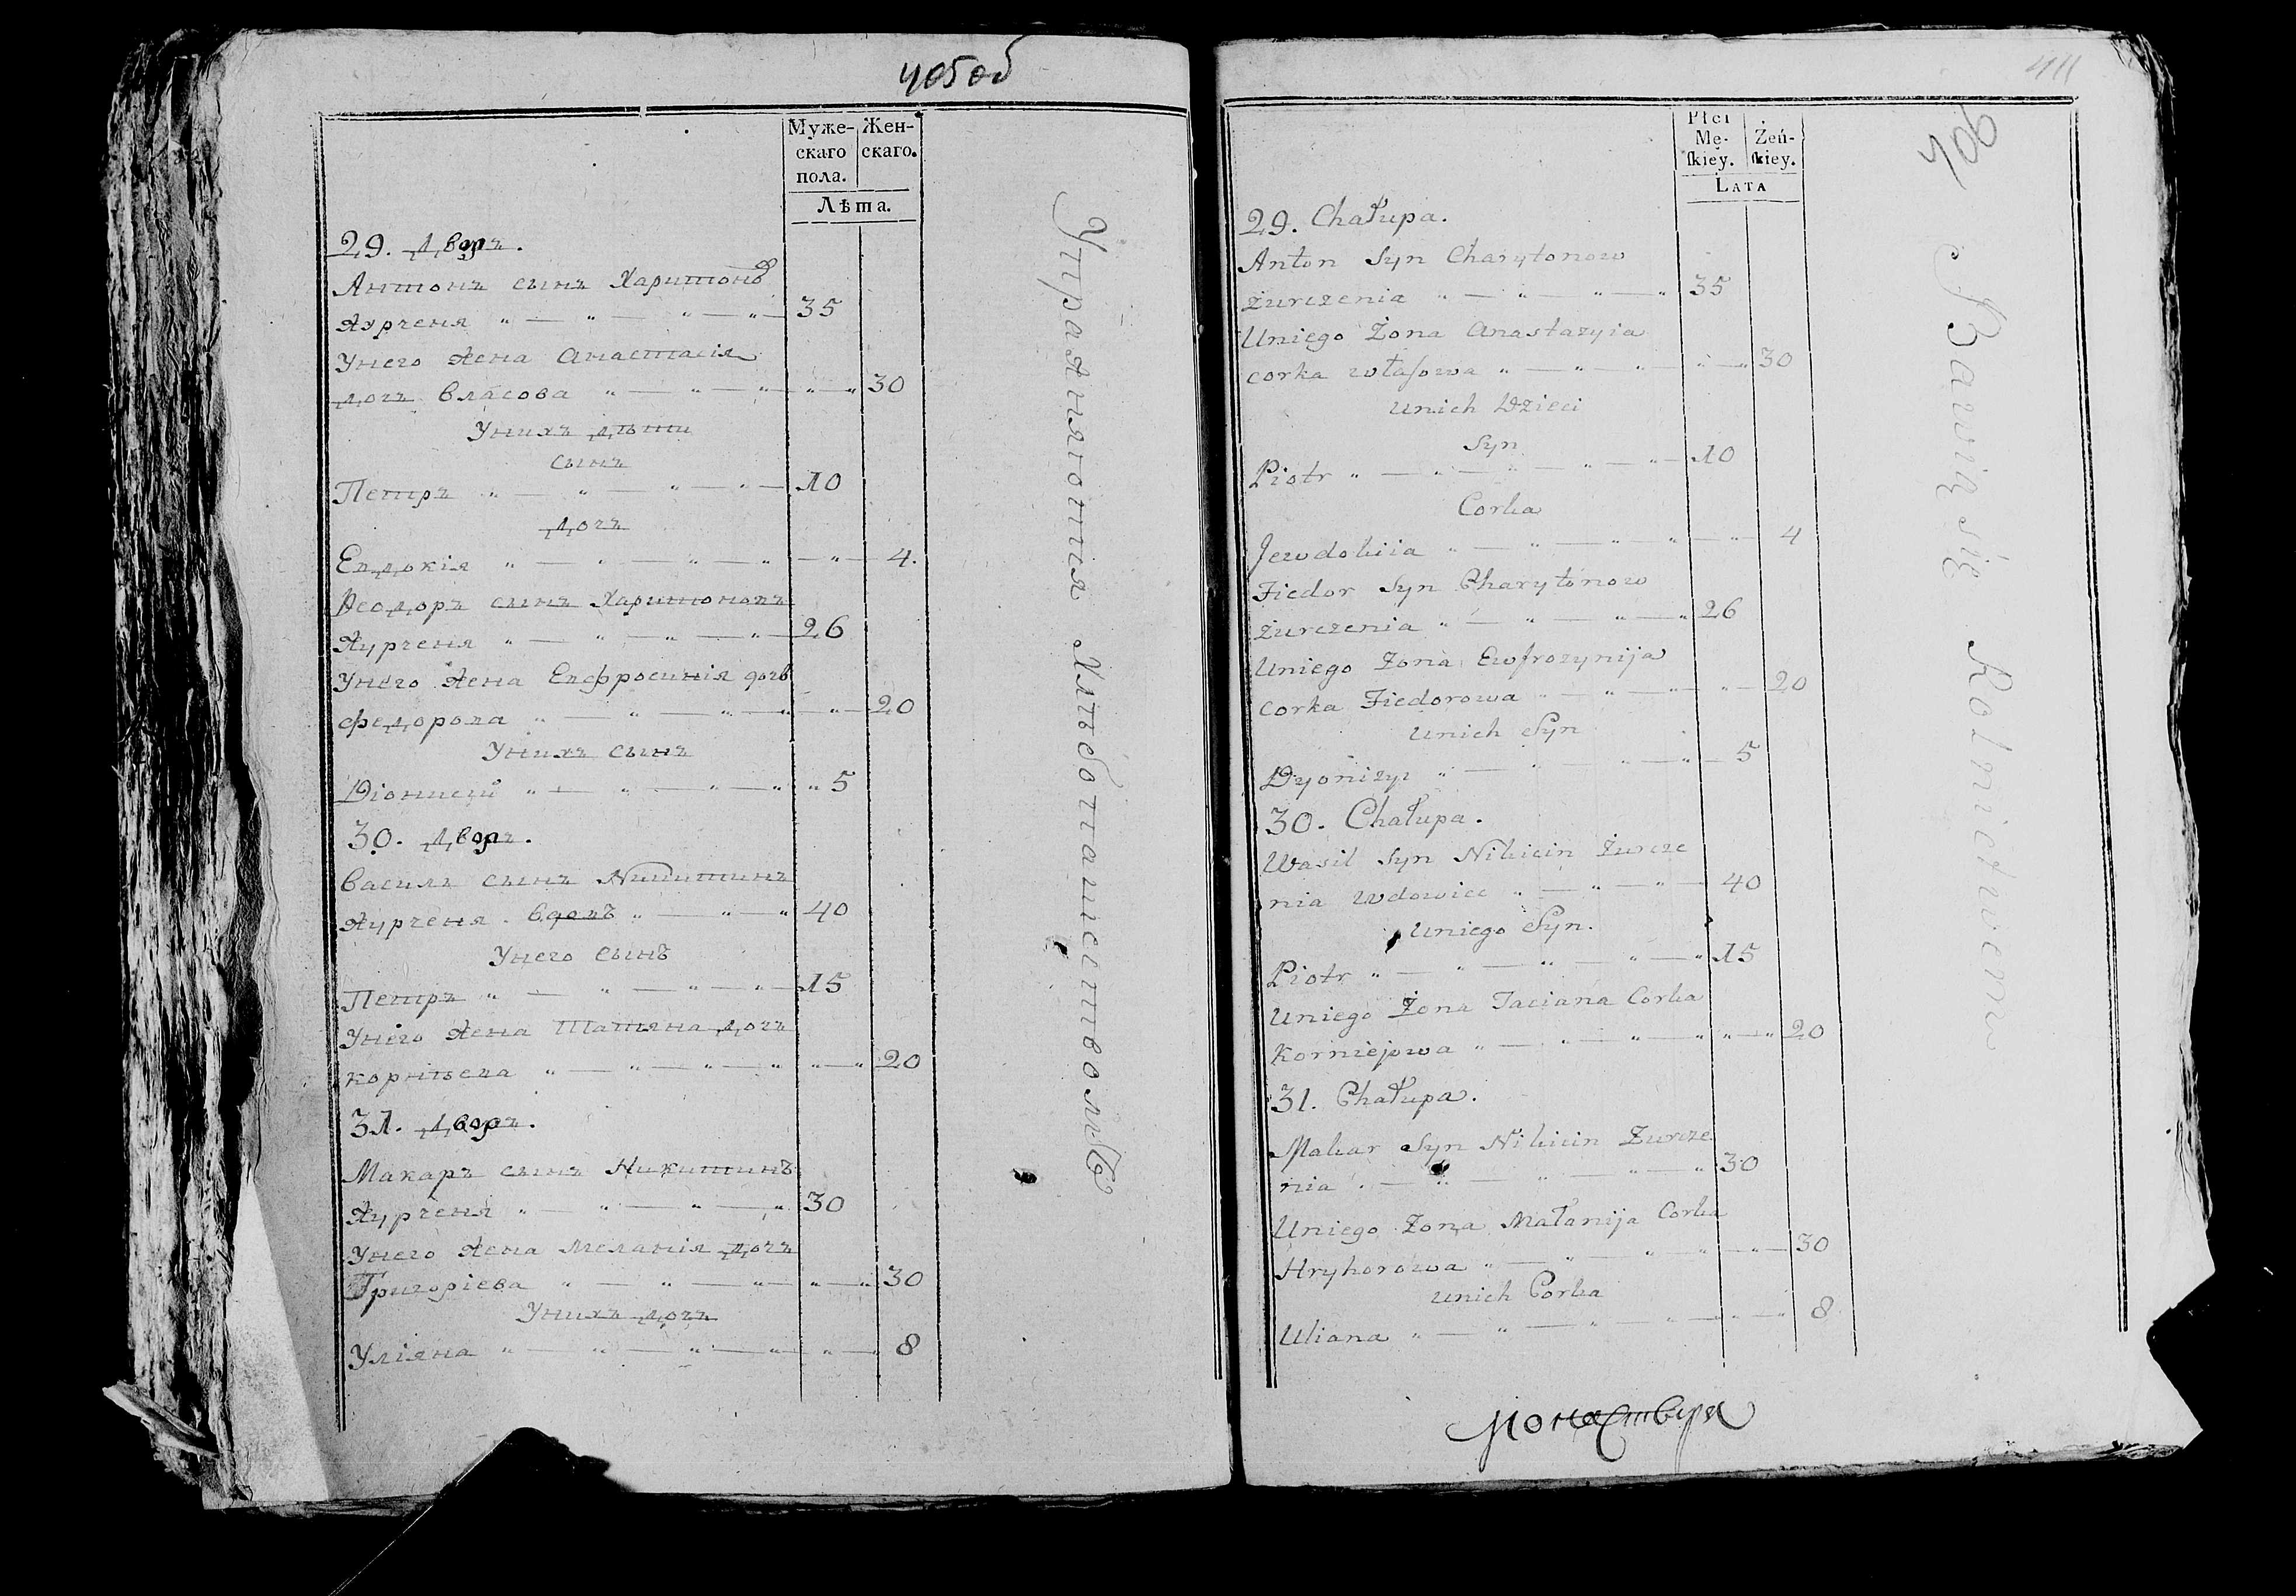 405 об
Муже-
скаго
пола.
Жен-
скаго.
Лѣта.
29. Дворъ.
Антонъ сынъ Харитоновъ
Журченя " — " — " — " — 35
Унего жена Анастасія
дочъ Власова " — " — " — " — " 30
Унихъ дѣти
сынъ
Петръ " — " — " — " — 10
дочъ
Евдокія " — " — " — " — " — 4.
Ѳеодоръ сынъ Харитоновъ
Журченя " — " — " — " — 26
Унего жена Евфросинія дочъ
Федорова " — " — " — " — " — 20
Унихъ сынъ
Діонисій " — " — " — " " 5
30. Дворъ.
Василъ сынъ Никитинъ
Журченя. вдовъ " — " — " 40
Унего сынъ
Петръ " — " — " — " — 15
Унего жена Татьяна дочъ
Корнѣева " — " — " — " " — " 20
31. Дворъ.
Макаръ сынъ Никитинъ
Журченя " — " — " — " 30
Унего жена Меланія дочъ
Григоріева " — " — " — " — " 30
Унихъ дочъ
Уліяна " — " — " — " — " — 8
Упражняются Хлѣбопашествомъ
411
406
Płci
Mę-
ſkiey.
Żeń-
ſkiey.
LATA
29. Chałupa.
Anton Syn Charytonow
Żurczenia " — " — " — " 35
Uniego Żona Anastazyia
corka Własowa " — " — " — " — " 30
Unich Dzieci
Syn
Piotr " — " — " — " — " — 10
Corka
Jewdokiia " — " — " — " — " 4
Fiedor Syn Charytonow
Żurczenia " — " — " — " 26
Uniego Żona Ewfrozynija
corka Fiedorowa " — " — " — " — 20
Unich Syn
Dyonizy " — " — " — " — 5
30. Chałupa.
Wasil Syn Nikicin Żurcze
nia Wdowiec " — " — " — 40
Uniego Syn.
Piotr " — " — " — " — " 15
Uniego Żona Taciana Corka
Korniejowa " — " — " — " " — " 20
31. Chałupa.
Makar Syn Nikicin Żurcze
nia " — " — " — " — " 30
Uniego Żona Małanija Corka
Hryhorowa " — " — " — " — " — 30
Unich Corka
Uliana " — " — " — " — " — " 8
Bawią się Rolnictwem